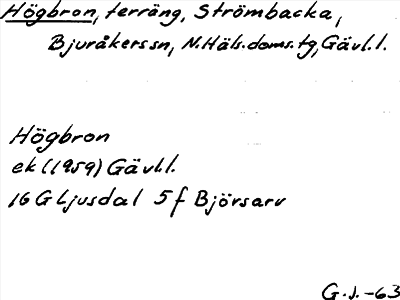 Högbron, terräng, Strömbacka,
Bjuråkerssn, N.Häls.doms.tg, Gävl.l.
Högbron
ek (1959) Gävl.l.
16 G Ljusdal 5f Björsarv
G.J.-63